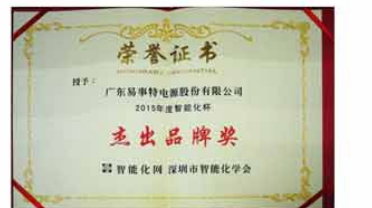 荣誉证书
授予：
广东易事特电源股份有限公司
2015年度智能化杯
杰出品牌奖
智能化网 深圳市智能化学会